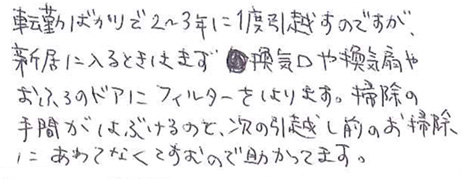 転勤ばかりで2〜3年に1度引越すのですが、
新居に入るときはまず換気口や換気扇や
おふろのドアにフィルターをはります。掃除の
手間がはぶけるのと、次の引越し前のお掃除
にあわてなくてすむので助かってます。